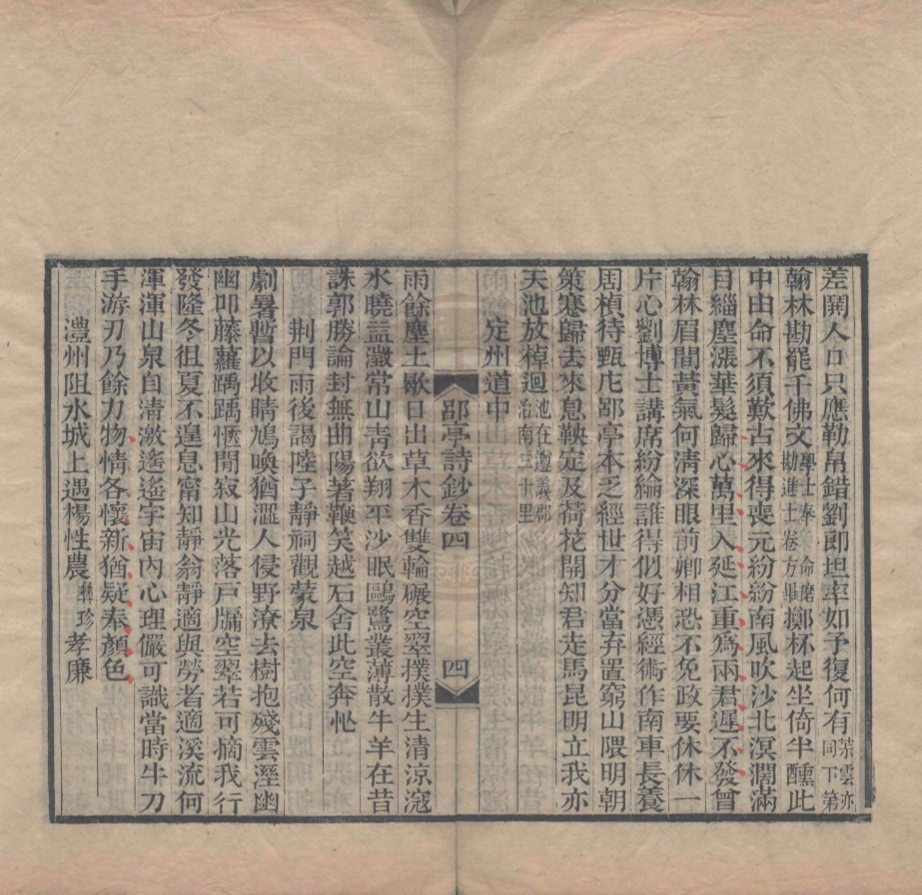 差關人口只應勒帛錯劉即坦率如予復何有芷雲亦同下第
翰林勘罷千佛文學士奉命磨勘進士卷方畢擲杯起坐倚半醺此
中由命不須歎古來得喪元紛紛南風吹沙北溟濶滿
目緇塵漲華髮歸心萬里入延江重爲兩君遲不發曾
翰林眉間黃氣何清深眼前卿相恐不免政要休休一
片心劉博士講席紛綸誰得似好憑經術作南車長養
周楨待甄庀郘亭本乏經世才分當弃置窮山隈明朝
策蹇歸去來息鞅定及荷花開知君走馬昆明立我亦
天池放棹迴池在遵義郡治南三十里
定州道中
郘亭詩鈔卷四
四
雨餘塵土歇日出草木香雙輪碾空翠撲撲生清涼滱
水曉盆瀲常山靑欲翔平沙眠鷗鷺叢薄散牛羊在昔
誅郭勝論封無曲陽著鞭笑越石舍此空奔忙
荆門雨後謁陸子靜祠觀蒙泉
劇暑暫以收晴鳩喚猶澀人侵野潦去樹抱殘雲溼幽
幽叩藤蘿踽踽愜閒寂山光落戸牖空翠若可摘我行
發隆冬徂夏不遑息甯知靜翁靜適與勞者適溪流何
渾渾山泉自清激遙遙宇宙內心理儼可識當時牛刀
手游刃乃餘力物情各懷新猶疑奉顏色
澧州阻水城上遇楊性農彝珍孝廉